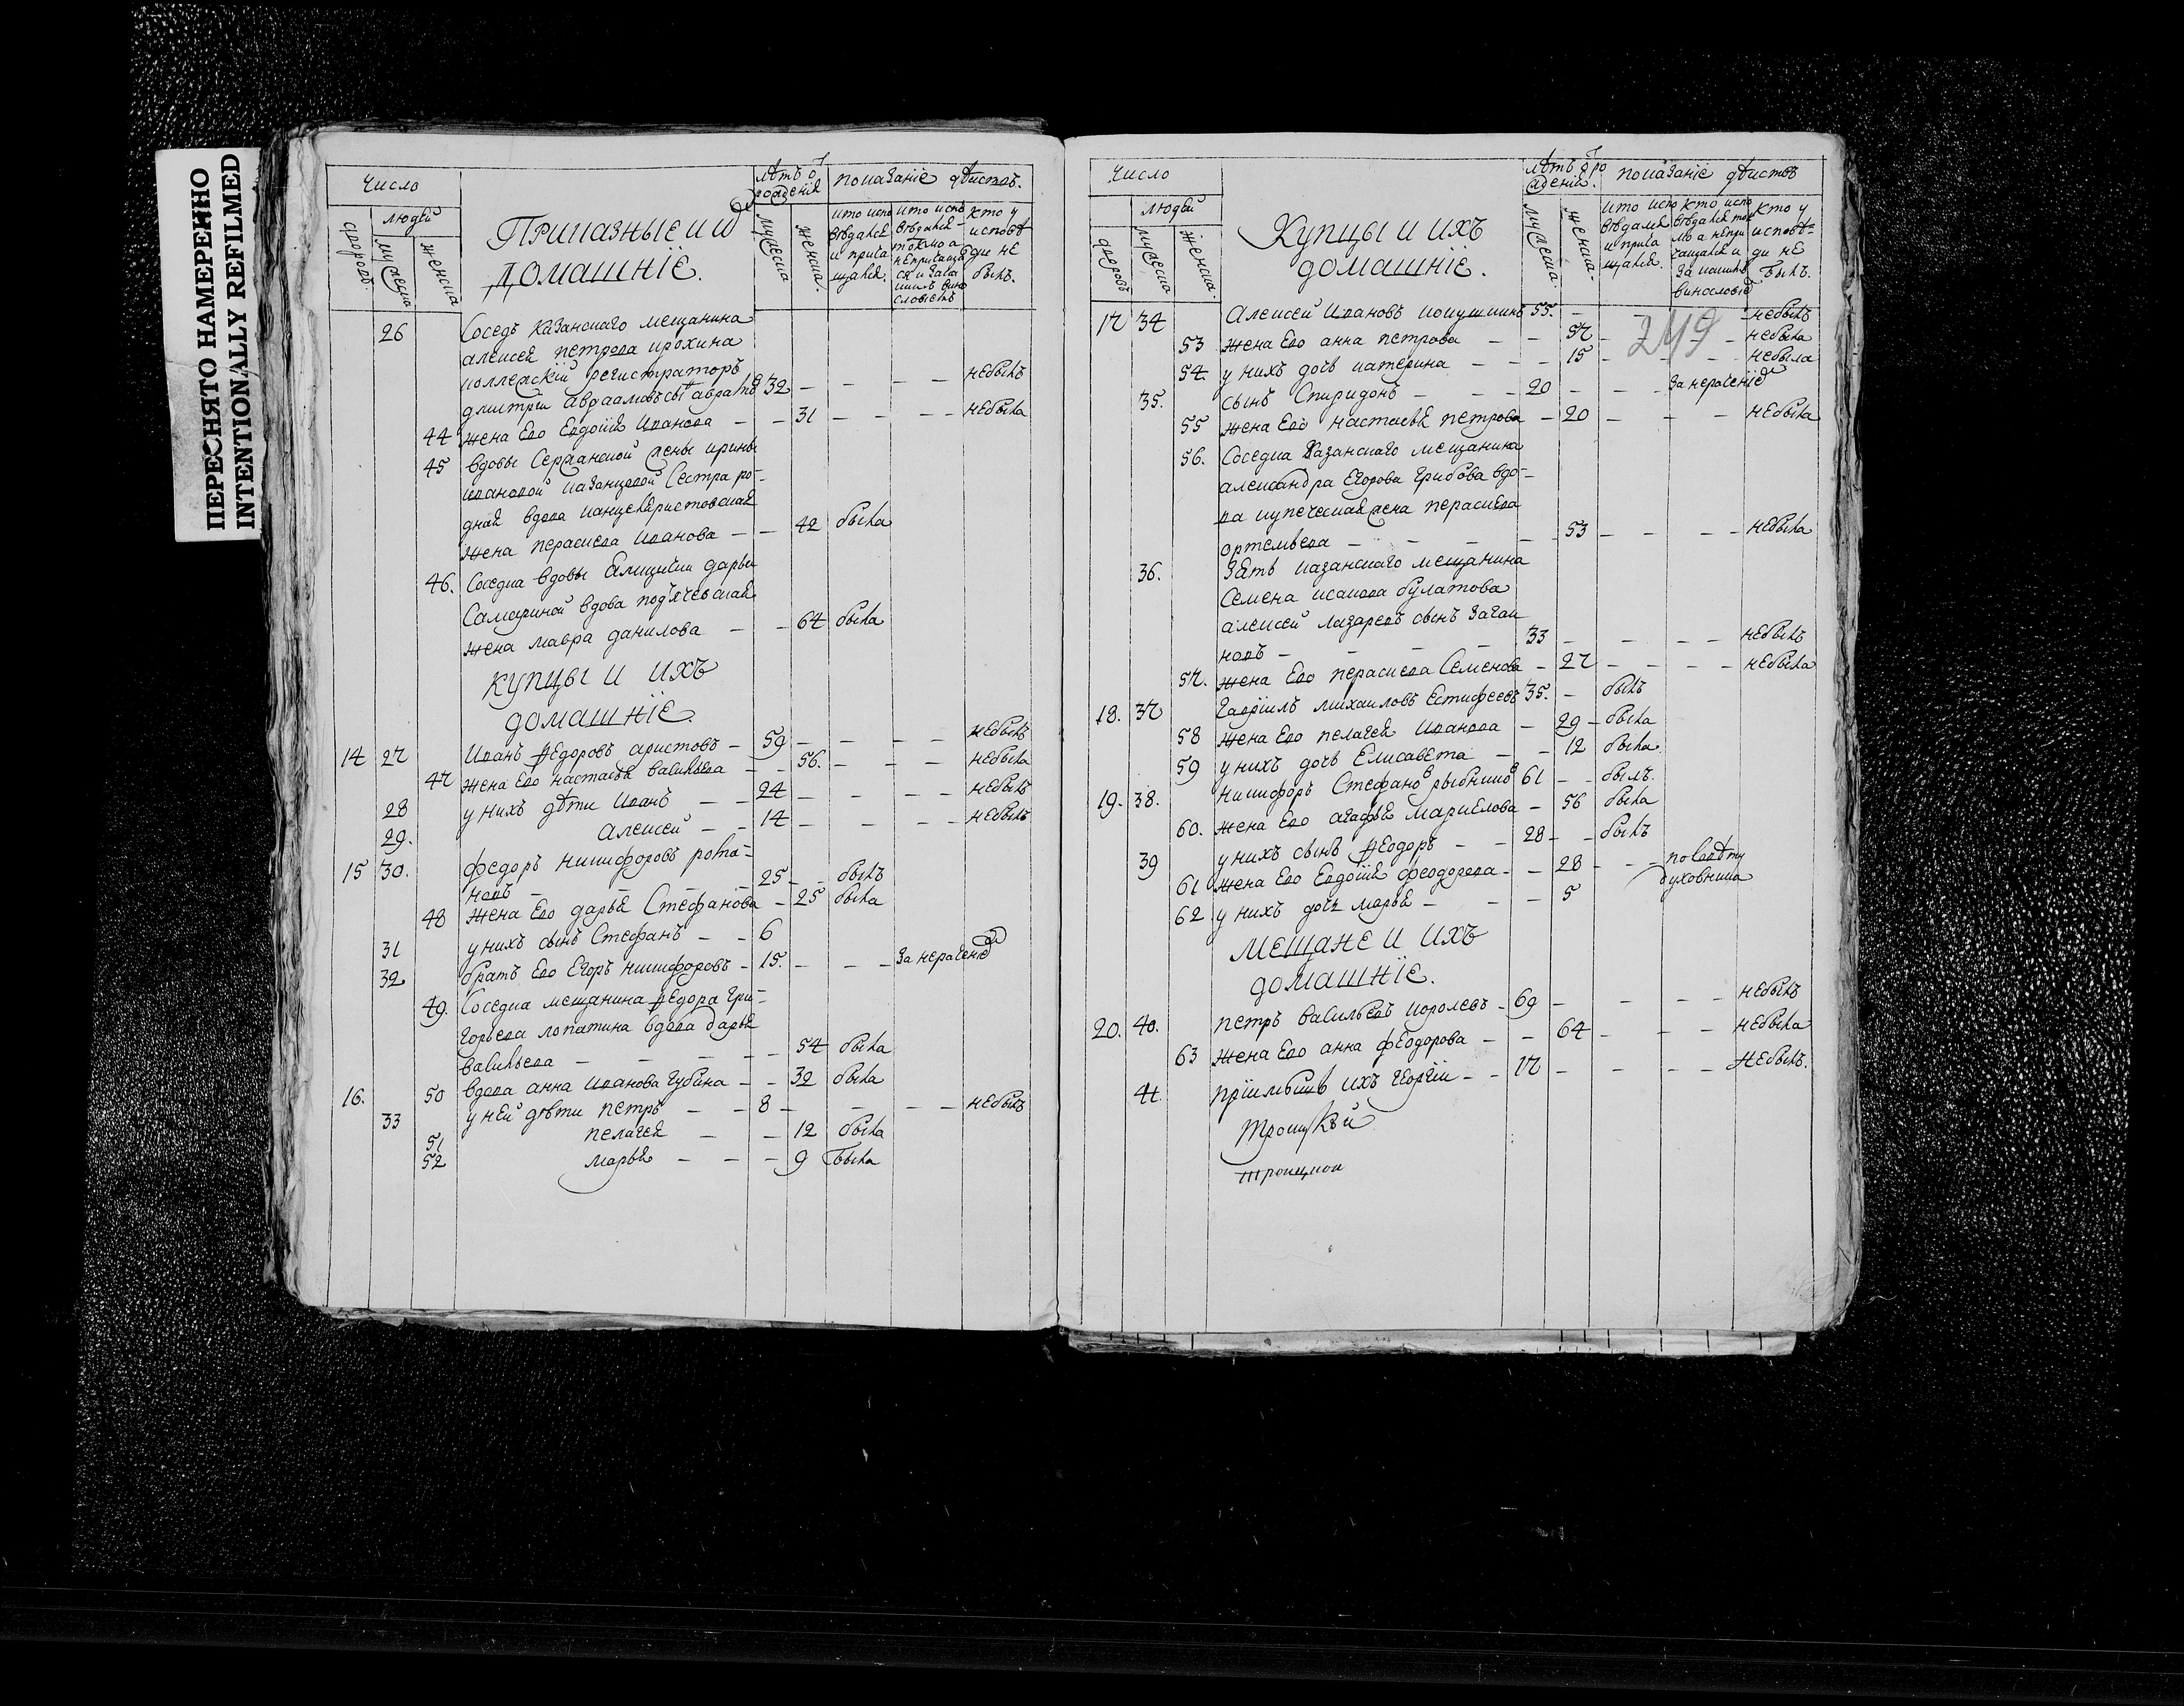 ПЕРЕСНЯТО НАМЕРЕННО
INTENTIONALLY REFILMED
Число
лѣтъ ѿ рожденія
показаніе дѣиствъ.
дворовъ.
людей
мужеска
женска
Приказные и их
домашніе.
мужеска
женска.
кто испо
вѣдался
и прича
щался.
кто испо
вѣдался
токмо а
не причаща
ся и за ка
кимъ вин
словіемъ
кто у
исповѣ
ди не
былъ.
26 Соседъ казанскаго мещанина
алексея петрова ирохина
коллежскій регистраторъ
дмитри авраамовъ сынъ 32 — — — — небылъ
44 жена Ево Евдокия иванова — — 31 — — — — небыла
45 вдовы Сержанской жены ирины
ивановой казанцовой Сестра ро-
дная вдова канцеляристовская
жена параскева иванова — — 42 была
46. Соседка вдовы дарьи
Самариной вдова подячевская
жена мавра данилова — — 64 была
купцы и ихъ
домашніе.
14 27 Иванъ Федоровъ аристовъ — 59 — — — — небылъ
47 жена Ево настасья васильева — — 56. — — — небыла
28 у нихъ дѣти иванъ — — 24 — — — — небылъ
29. алексей — — 14 — — — — небылъ
15 30. федоръ никифоровъ рома-
новъ — — — — 25 — — былъ
48 жена Ево дарья Стефанова — 25 была
31 у нихъ сынъ Стефанъ — — 6
32 братъ Ево Егоръ никифоровъ — 15. — — — за нерачение
49. Соседка мещанина Федора гри-
горьева лопатина вдова дарья
васильева — — — — — 54 была
16. 50 вдова анна иванова губина — — 32 была
33 у ней дѣти петръ — — 8 — — — — небылъ
51 пелагея — — 12 была
52 марья — — — 9 была
Число
лѣтъ ѿ ро
жденія.
показаніе дѣиствъ
дворовъ
людей
мужеска
женска.
Купцы и ихъ
домашніе.
мужеска.
женска.
кто испо
вѣдался
и прича
щался.
кто испо
вѣдался ток
мо а непри
чащался и
за какимъ
винословіе
кто у
исповѣ-
ди не
былъ.
249
17 34 Алексей Ивановъ кокушкинъ 55. — — — небылъ
53 жена Ево анна петрова — — 57 — — — небыла
54. у нихъ дочь катерина — — — 15 — — — небыла
35. сынъ Спиридонъ — — — 20 — — — за нерачение
55 жена Ево настасья петрова — 20 — — — небыла
56. Соседка казанскаго мещанина
александра Егорова грибова вдо-
ва купеческая жена параскева
артемьева — — — — — 53 — — — — небыла
36. Зять казанскаго мещанина
семена исакова булатова
алексей лазаревъ сынъ
новъ — — — — 33 — — — — небылъ
57. жена Ево параскева Семенова — 27 — — — — небыла
18. 37 Гавріилъ михаиловъ Естифеевъ 35. — былъ
58 жена Ево пелагея иванова — 29 — была
59 у нихъ дочь Елисавета — — 12 была
19. 38. никифоръ Стефановъ рыбниковъ 61 — — былъ.
60. жена Ево агафья маркелова — 56 была
39 у нихъ сынъ Феодоръ — — 28 — — былъ
61 жена Ево Евдокия феодорова — — 28 — — — по совѣту
духовника
62 у нихъ дочь марья — — — 5
мещане и ихъ
домашніе.
20. 40. петръ васильевъ королевъ — 69 — — — — небылъ
63 жена Ево анна феодорова — — 64 — — — небыла
41 пріимышъ ихъ георгіи — — 17 — — — — небылъ.
троицкой
троицкои